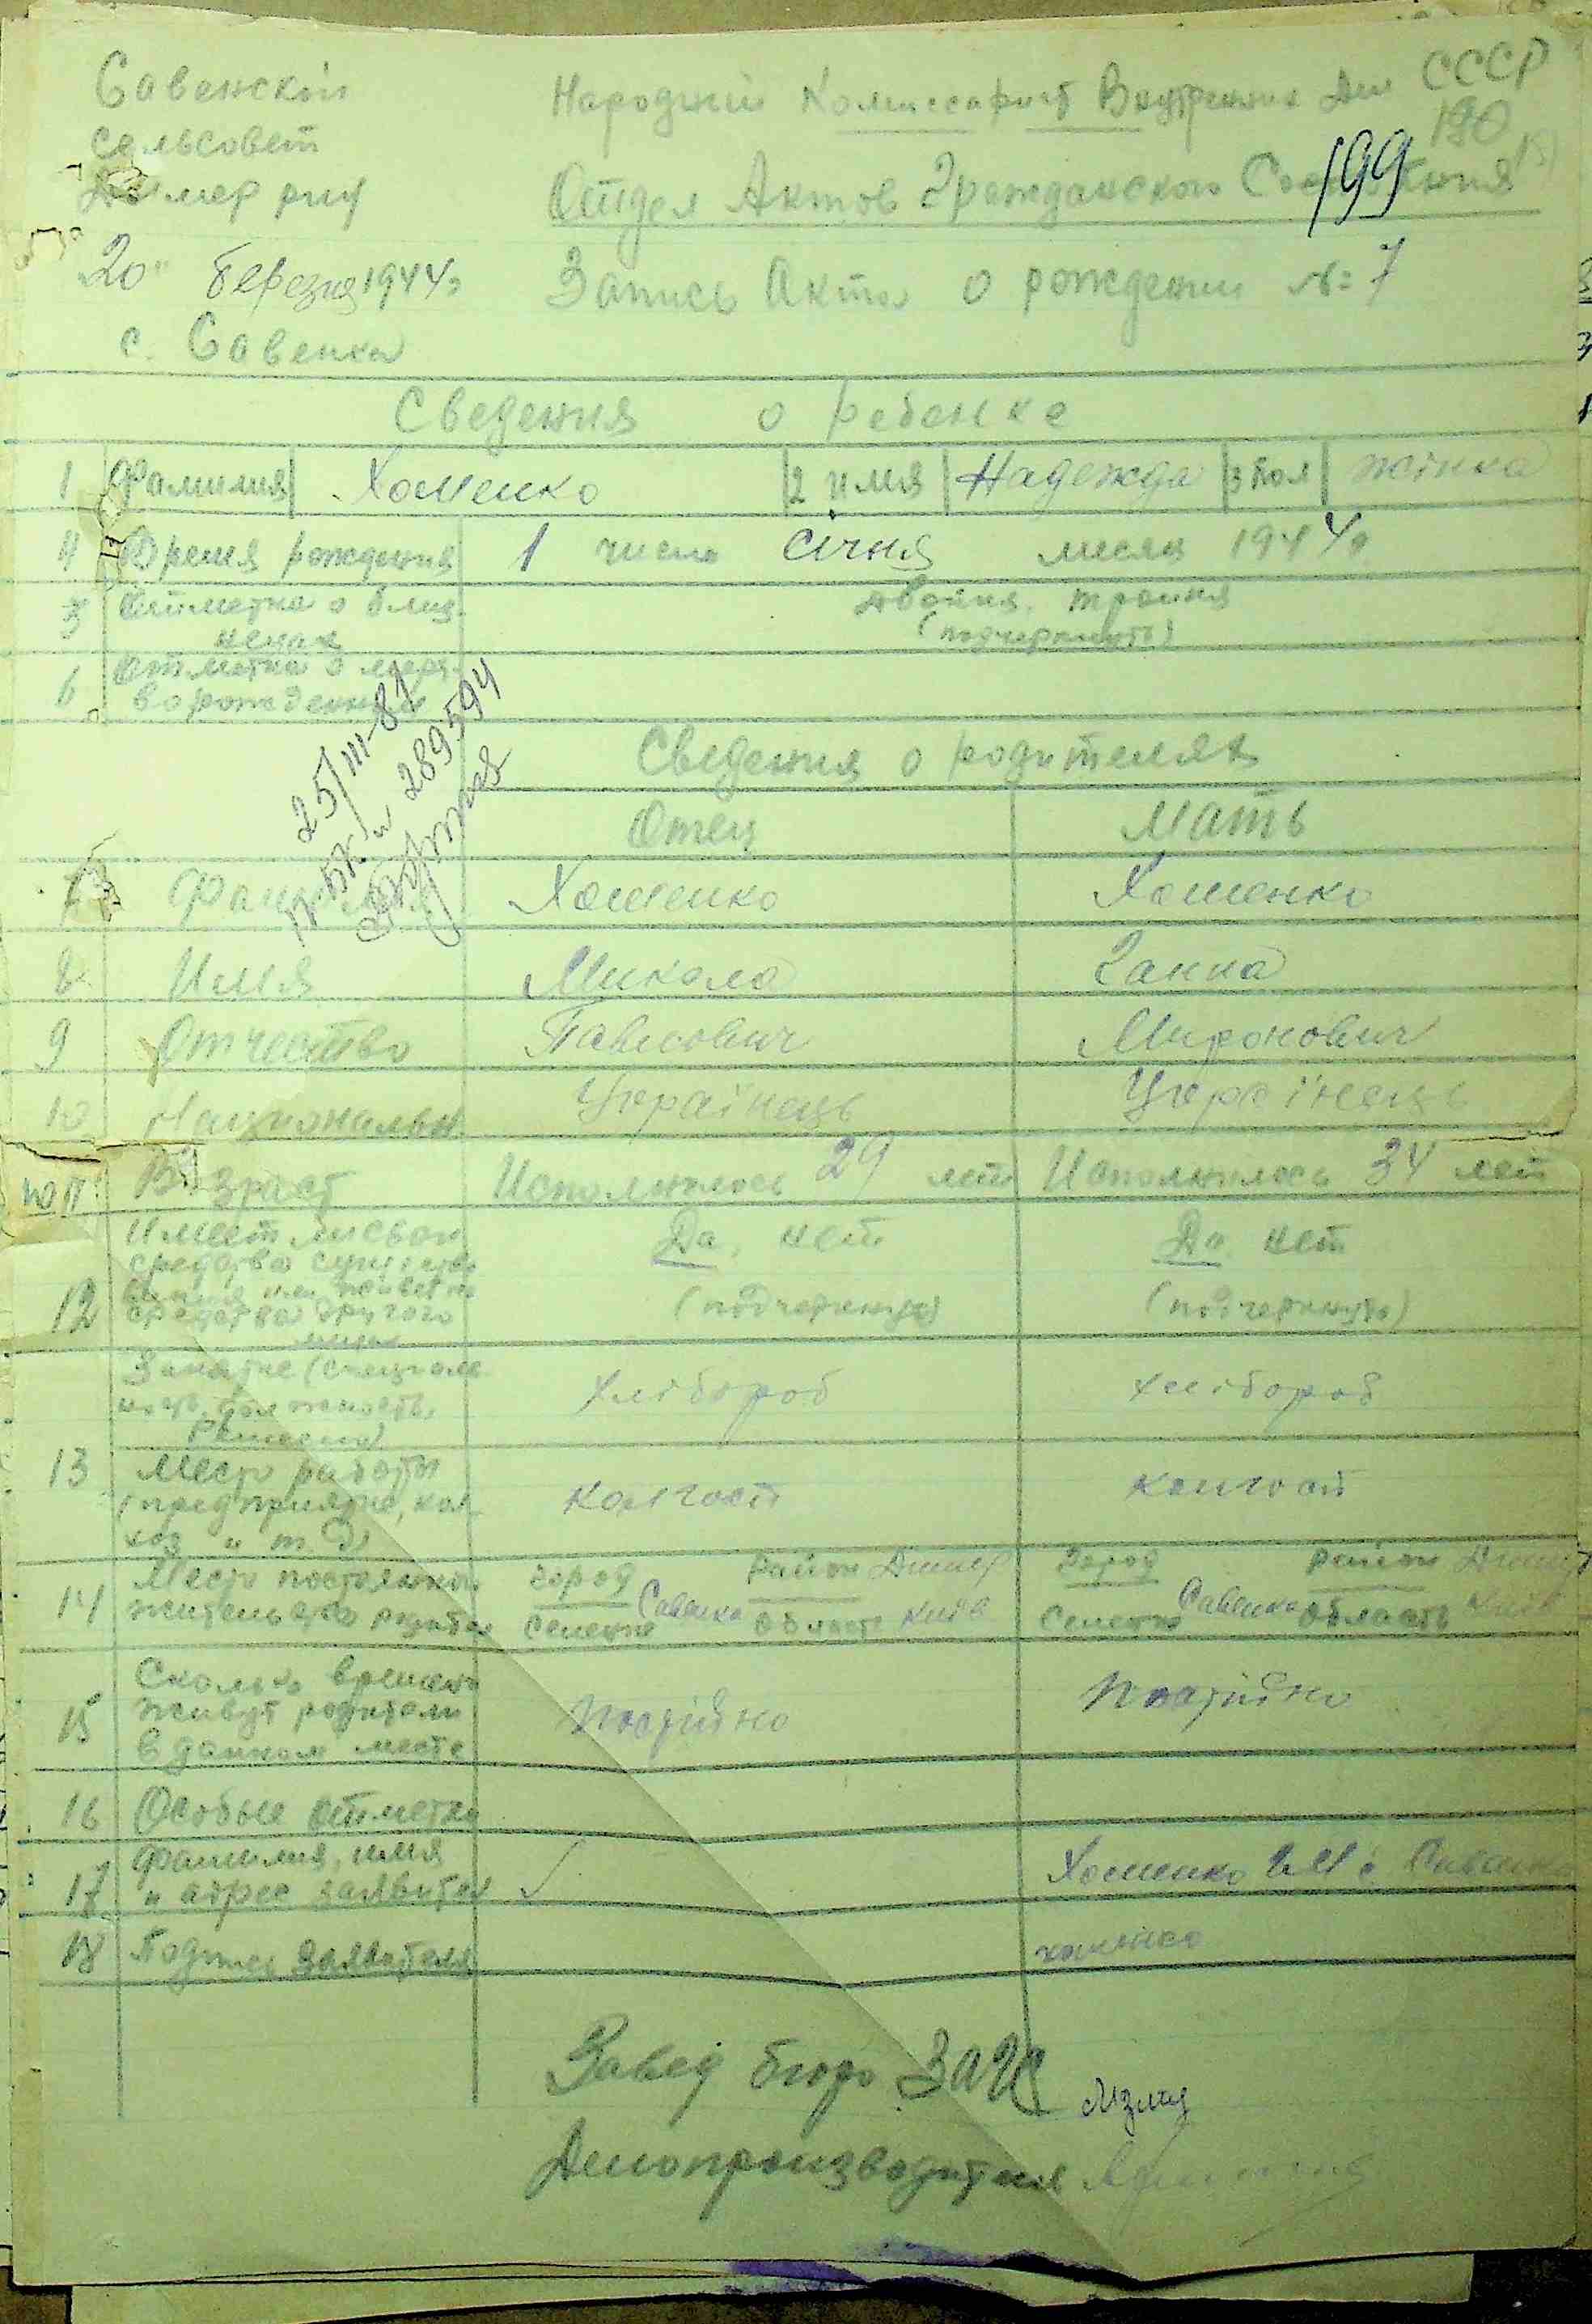 Савенский
сельсовет
Димер
Народний Комиссариат Внутренних Дел СССР
190
199
Отдел Актов Гражданского Состояния
"20" березня 1944г
Запись Акта о рождении №: 7
с. Савенка
Сведения о ребенке
1 Фамилия Хоменко 2 имя Надежда 3 Пол жінка
4 Время рождения 1 число січня месяц 1944г
5 Отметка о близ-
нецах
двойня, тройня
(подчеркнуть)
6 Отметка о мерт-
ворожденным
25/III-81
289594
Сведения о родителях
Отец Мать
7 Фамилия Хоменко Хоменко
8 Имя Микола Ганна
9 Отчество Павлович Миронович
10 Национальн. Українець Українець
11 Возраст Исполнилось 29 лет Исполнилось 34 лет
12 Имеет ли свои
средства существо
вания или живет на
средства другого
лица
Да, нет Да, нет
(подчеркнуть) (подчеркнуть)
13 Занятие (специаль
ность, должность,
Ремесло)
Хлібороб хлібороб
Место работы
(предприятие, кол
хоз и т. д)
колгосп колгосп
14 Место постоянного
жительства родител
город район Димер город район Димер
селение Савенка область Київ селение Савенка область Київ
15 Сколько времени
живут родители
в данном месте
постійно постійно
16 Особые отметки
17 Фамилия, имя
и адрес заявител Хоменко Г М с Савенка
18 Подпись Заявителя хоменко
Завед бюро ЗАГС
Делопроизводитель